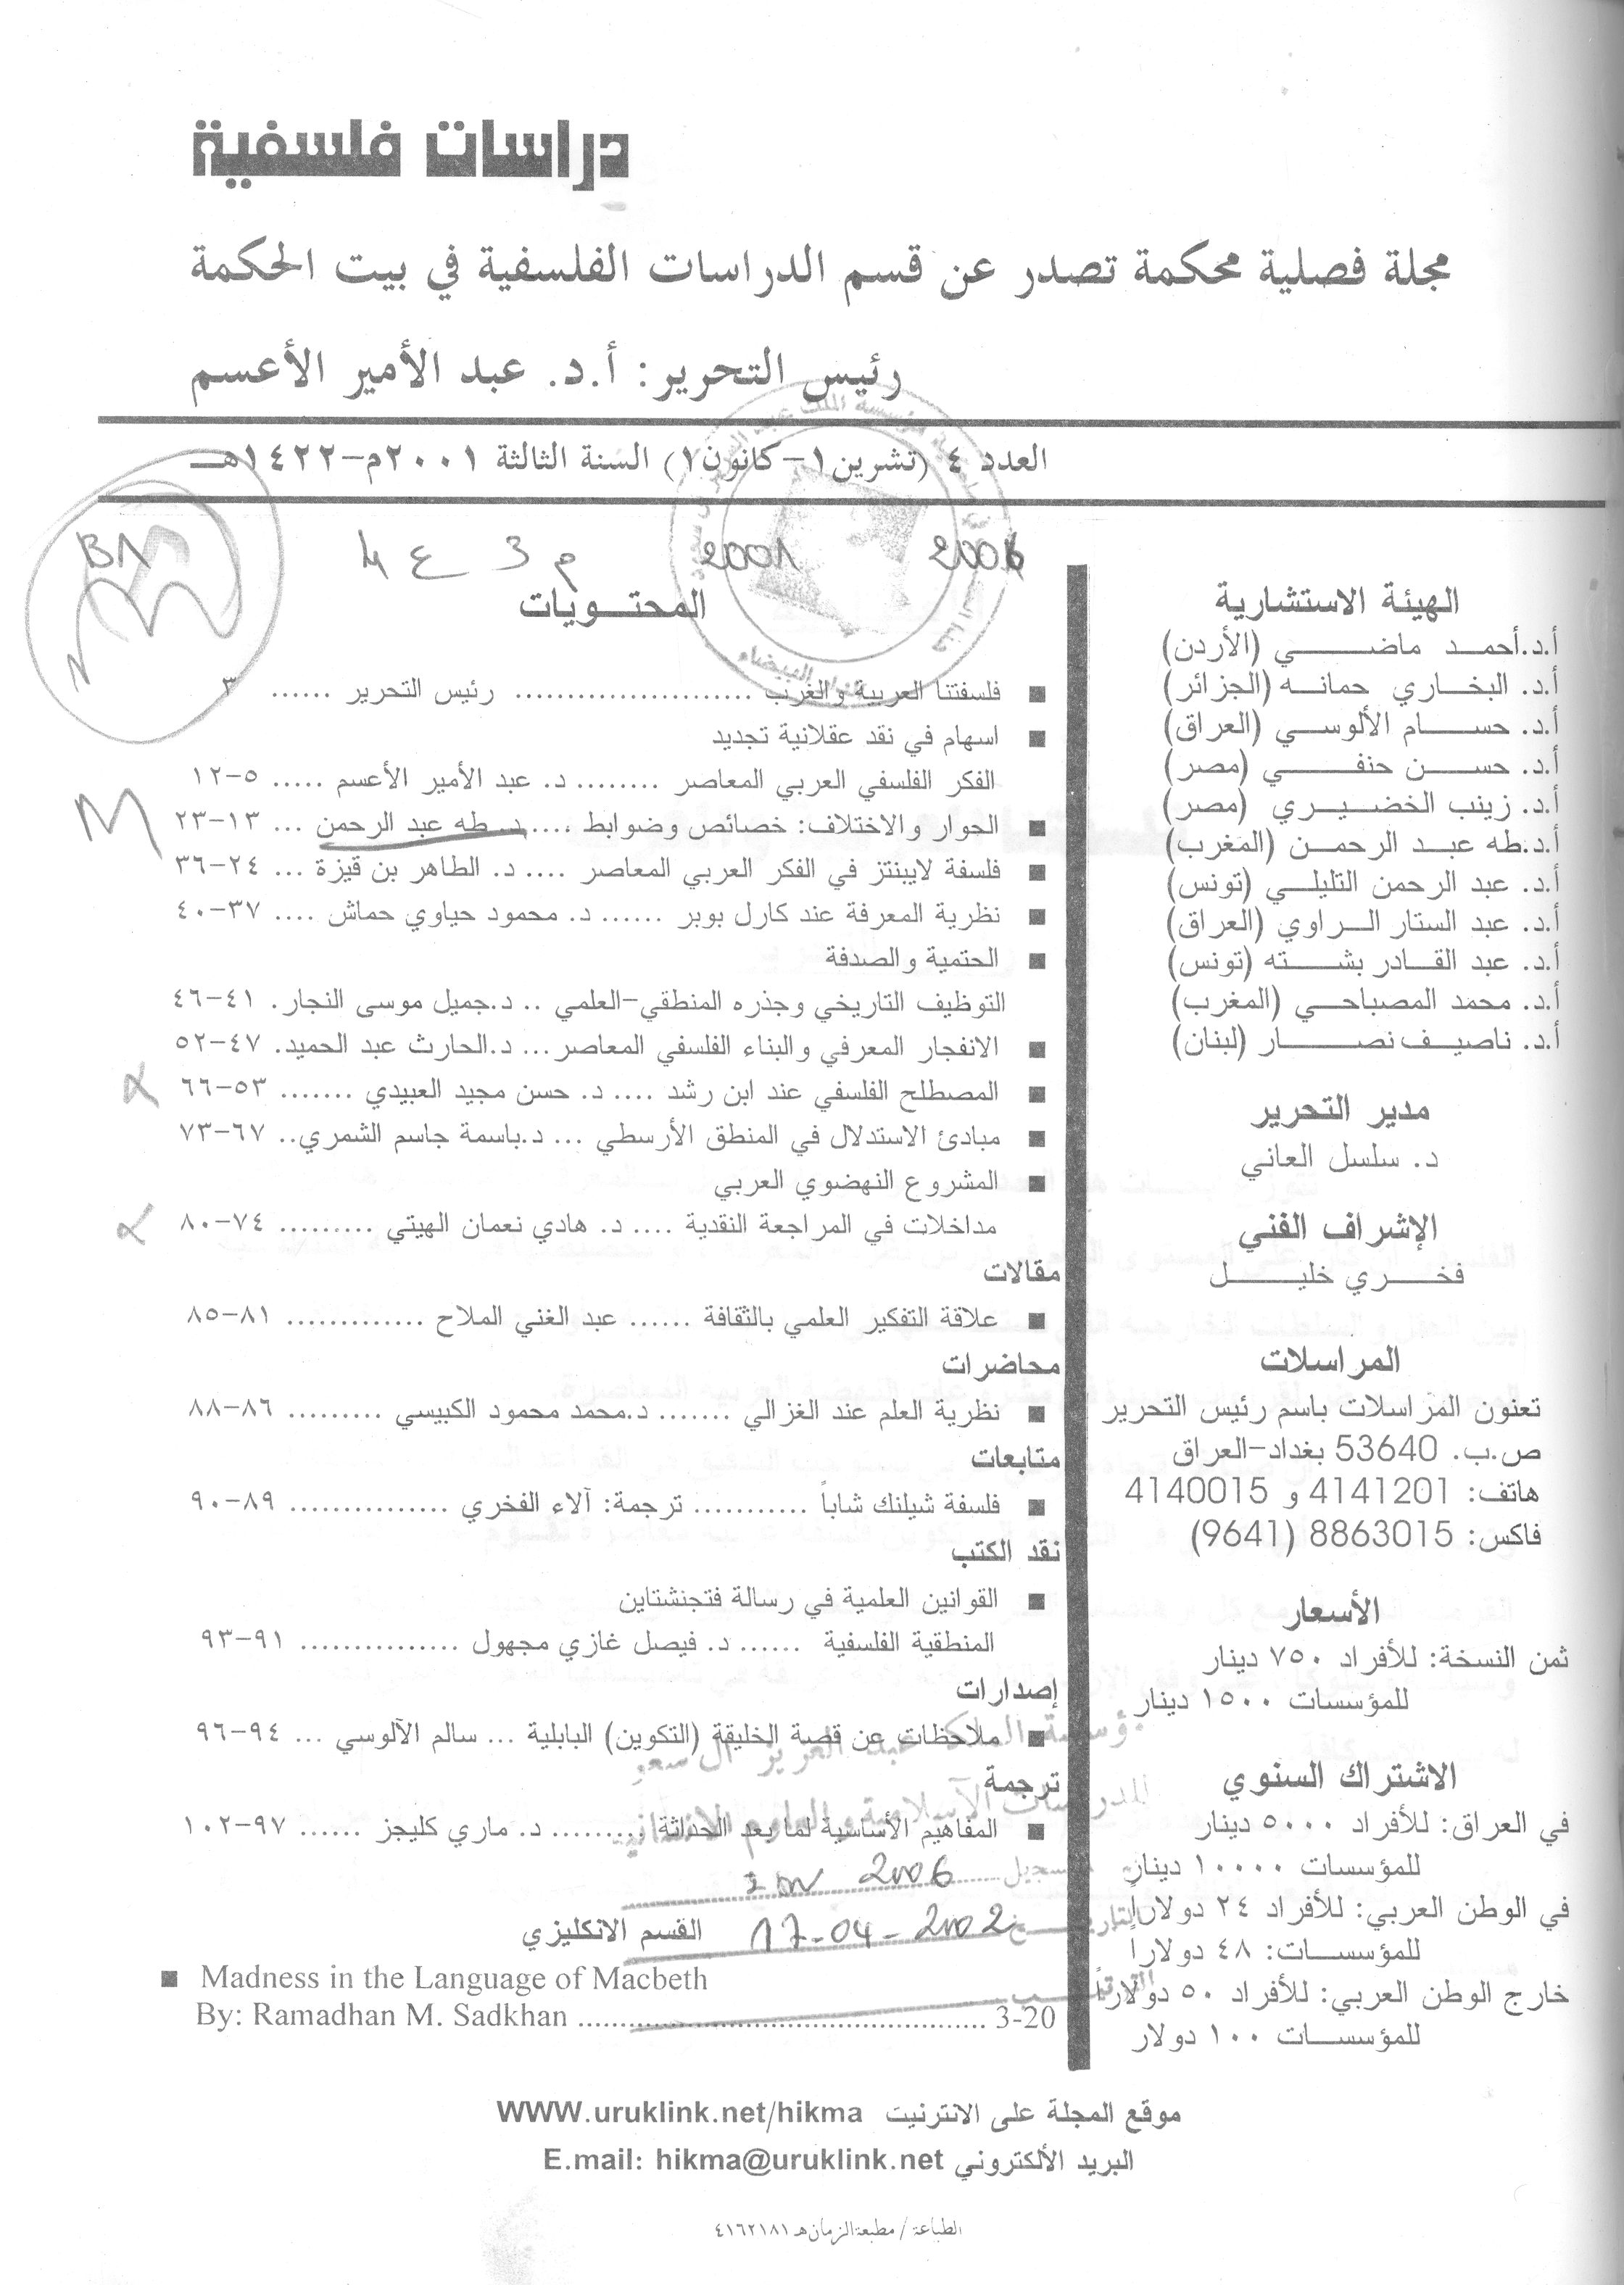 دراسات فلسفية
مجلة فصلية محكمة تصدر عن قسم الدراسات الفلسفية في بيت الحكمة
رئيس التحرير: أ.د. عبد الأمير الأعسم
العدد ٤ (تشرين١-كانون١) السنة الثالثة ٢٠٠١م-١٤٢٢هـ
BA
4 ع 3 م
2001
2006
الهيئة الاستشارية
أ.د.أحمد ماضي (الأردن)
أ.د. البخاري حمانه (الجزائر)
أ.د. حسام الألوسي (العراق)
أ.د. حسن حنفي (مصر)
أ.د. زينب الخضيري (مصر)
أ.د.طه عبد الرحمن (المغرب)
أ.د. عبد الرحمن التليلي (تونس)
أ.د. عبد الستار الراوي (العراق)
أ.د. عبد القادر بشته (تونس)
أ.د. محمد المصباحي (المغرب)
أ.د. ناصيف نصار (لبنان)
مدير التحرير
د. سلسل العاني
الإشراف الفني
فخري خليل
المراسلات
تعنون المراسلات باسم رئيس التحرير
ص.ب. 53640 بغداد-العراق
هاتف: 4141201 و 4140015
فاكس: 8863015 (9641)
الأسعار
ثمن النسخة: للأفراد ٧٥٠ دينار
للمؤسسات ١٥٠٠ دينار
الاشتراك السنوي
في العراق: للأفراد ٥٠٠٠ دينار
للمؤسسات ١٠٠٠٠ دينار
في الوطن العربي: للأفراد ٢٤ دولاراً
للمؤسسات: ٤٨ دولارا
خارج الوطن العربي: للأفراد ٥٠ دولاراً
للمؤسسات ١٠٠ دولار
المحتويات
■ فلسفتنا العربية والغرب ........................ رئيس التحرير ...... ٣
■ اسهام في نقد عقلانية تجديد
الفكر الفلسفي العربي المعاصر ........ د. عبد الأمير الأعسم ..... ٥-١٢
■ الحوار والاختلاف: خصائص وضوابط .... د. طه عبد الرحمن ... ١٣-٢٣
■ فلسفة لايبنتز في الفكر العربي المعاصر .... د. الطاهر بن قيزة ... ٢٤-٣٦
■ نظرية المعرفة عند كارل بوبر ...... د. محمود حياوي حماش .... ٣٧-٤٠
■ الحتمية والصدفة
التوظيف التاريخي وجذره المنطقي-العلمي .. د.جميل موسى النجار. ٤١-٤٦
■ الانفجار المعرفي والبناء الفلسفي المعاصر... د.الحارث عبد الحميد. ٤٧-٥٢
■ المصطلح الفلسفي عند ابن رشد .... د. حسن مجيد العبيدي ....... ٥٣-٦٦
■ مبادئ الاستدلال في المنطق الأرسطي ... د.باسمة جاسم الشمري.. ٦٧-٧٣
■ المشروع النهضوي العربي
مداخلات في المراجعة النقدية .... د. هادي نعمان الهيتي ......... ٧٤-٨٠
مقالات
■ علاقة التفكير العلمي بالثقافة ...... عبد الغني الملاح ............. ٨١-٨٥
محاضرات
■ نظرية العلم عند الغزالي ....... د.محمد محمود الكبيسي ......... ٨٦-٨٨
متابعات
■ فلسفة شيلنك شاباً ........... ترجمة: آلاء الفخري ............... ٨٩-٩٠
نقد الكتب
■ القوانين العلمية في رسالة فتجنشتاين
المنطقية الفلسفية ...... د. فيصل غازي مجهول ............... ٩١-٩٣
إصدارات
■ ملاحظات عن قصة الخليقة (التكوين) البابلية ... سالم الآلوسي ... ٩٤-٩٦
ترجمة
■ المفاهيم الأساسية لما بعد الحداثة ......... د. ماري كليجز ...... ٩٧-١٠٢
2006
17-04-2002
القسم الانكليزي
■ Madness in the Language of Macbeth
By: Ramadhan M. Sadkhan .................................................. 3-20
موقع المجلة على الانترنيت WWW.uruklink.net/hikma
البريد الألكتروني E.mail: hikma@uruklink.net
الطباعة / مطبعة الزمان هـ ٤١٦٢١٨١